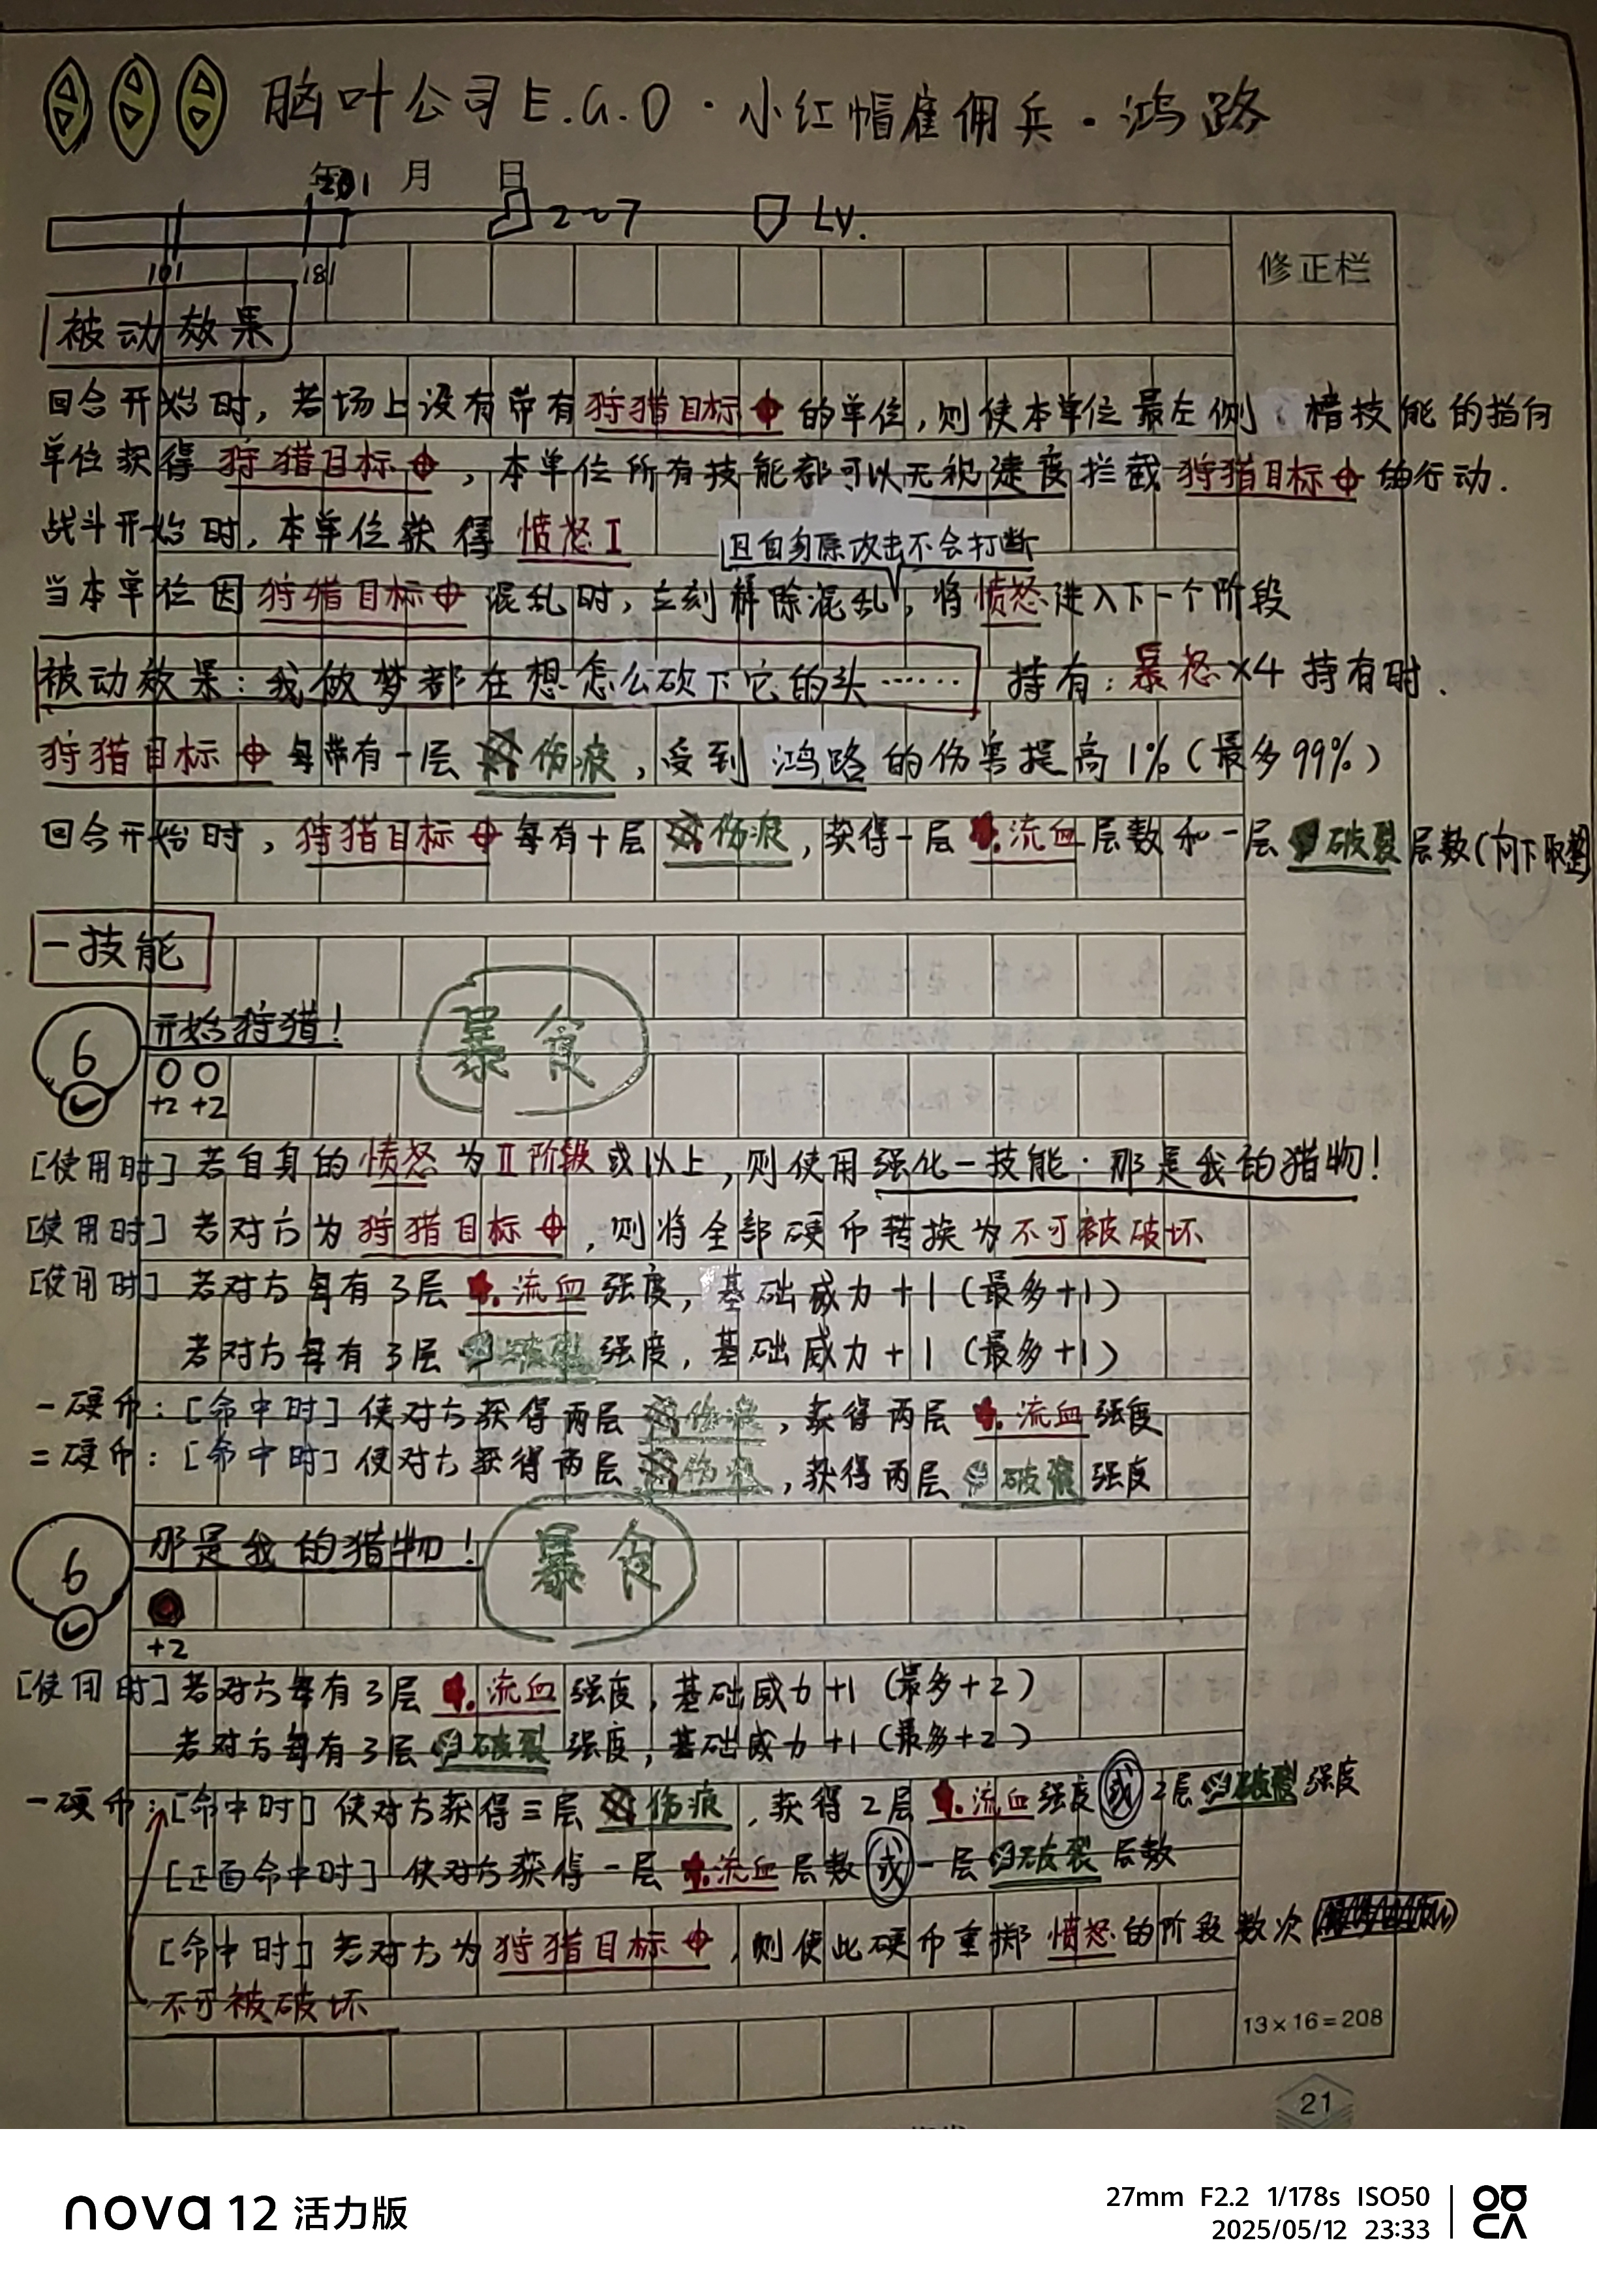 脑叶公司E.G.O·小红帽雇佣兵·鸿路
月 日
201
2~7 LV.
101 181
修正栏
被动效果
回合开始时,若场上没有带有狩猎目标的单位,则使本单位最左侧 槽技能的指向
单位获得狩猎目标,本单位所有技能都可以无视速度拦截狩猎目标的行动.
战斗开始时,本单位获得愤怒I
且自身原攻击不会打断
当本单位因狩猎目标混乱时,立刻解除混乱,将愤怒进入下一个阶段
被动效果:我做梦都在想怎么砍下它的头…… 持有:暴怒×4 持有时.
狩猎目标每带有一层伤痕,受到鸿路的伤害提高1%(最多99%)
回合开始时,狩猎目标每有十层伤痕,获得一层流血层数和一层破裂层数(向下取整)
一技能
6 开始狩猎! 暴食
+2 +2
[使用时]若自身的愤怒为II阶段或以上,则使用强化一技能·那是我的猎物!
[使用时]若对方为狩猎目标,则将全部硬币转换为不可被破坏
[使用时]若对方每有3层流血强度,基础威力+1(最多+1)
若对方每有3层破裂强度,基础威力+1(最多+1)
一硬币:[命中时]使对方获得两层伤痕,获得两层流血强度
二硬币:[命中时]使对方获得两层伤痕,获得两层破裂强度
6 那是我的猎物! 暴食
+2
[使用时]若对方每有3层流血强度,基础威力+1(最多+2)
若对方每有3层破裂强度,基础威力+1(最多+2)
一硬币:[命中时]使对方获得三层伤痕,获得2层流血强度或2层破裂强度
[正面命中时]使对方获得一层流血层数或一层破裂层数
[命中时]若对方为狩猎目标,则使此硬币重掷愤怒的阶段数次
不可被破坏
13×16=208
21
nova 12 活力版
27mm F2.2 1/178s ISO50
2025/05/12 23:33